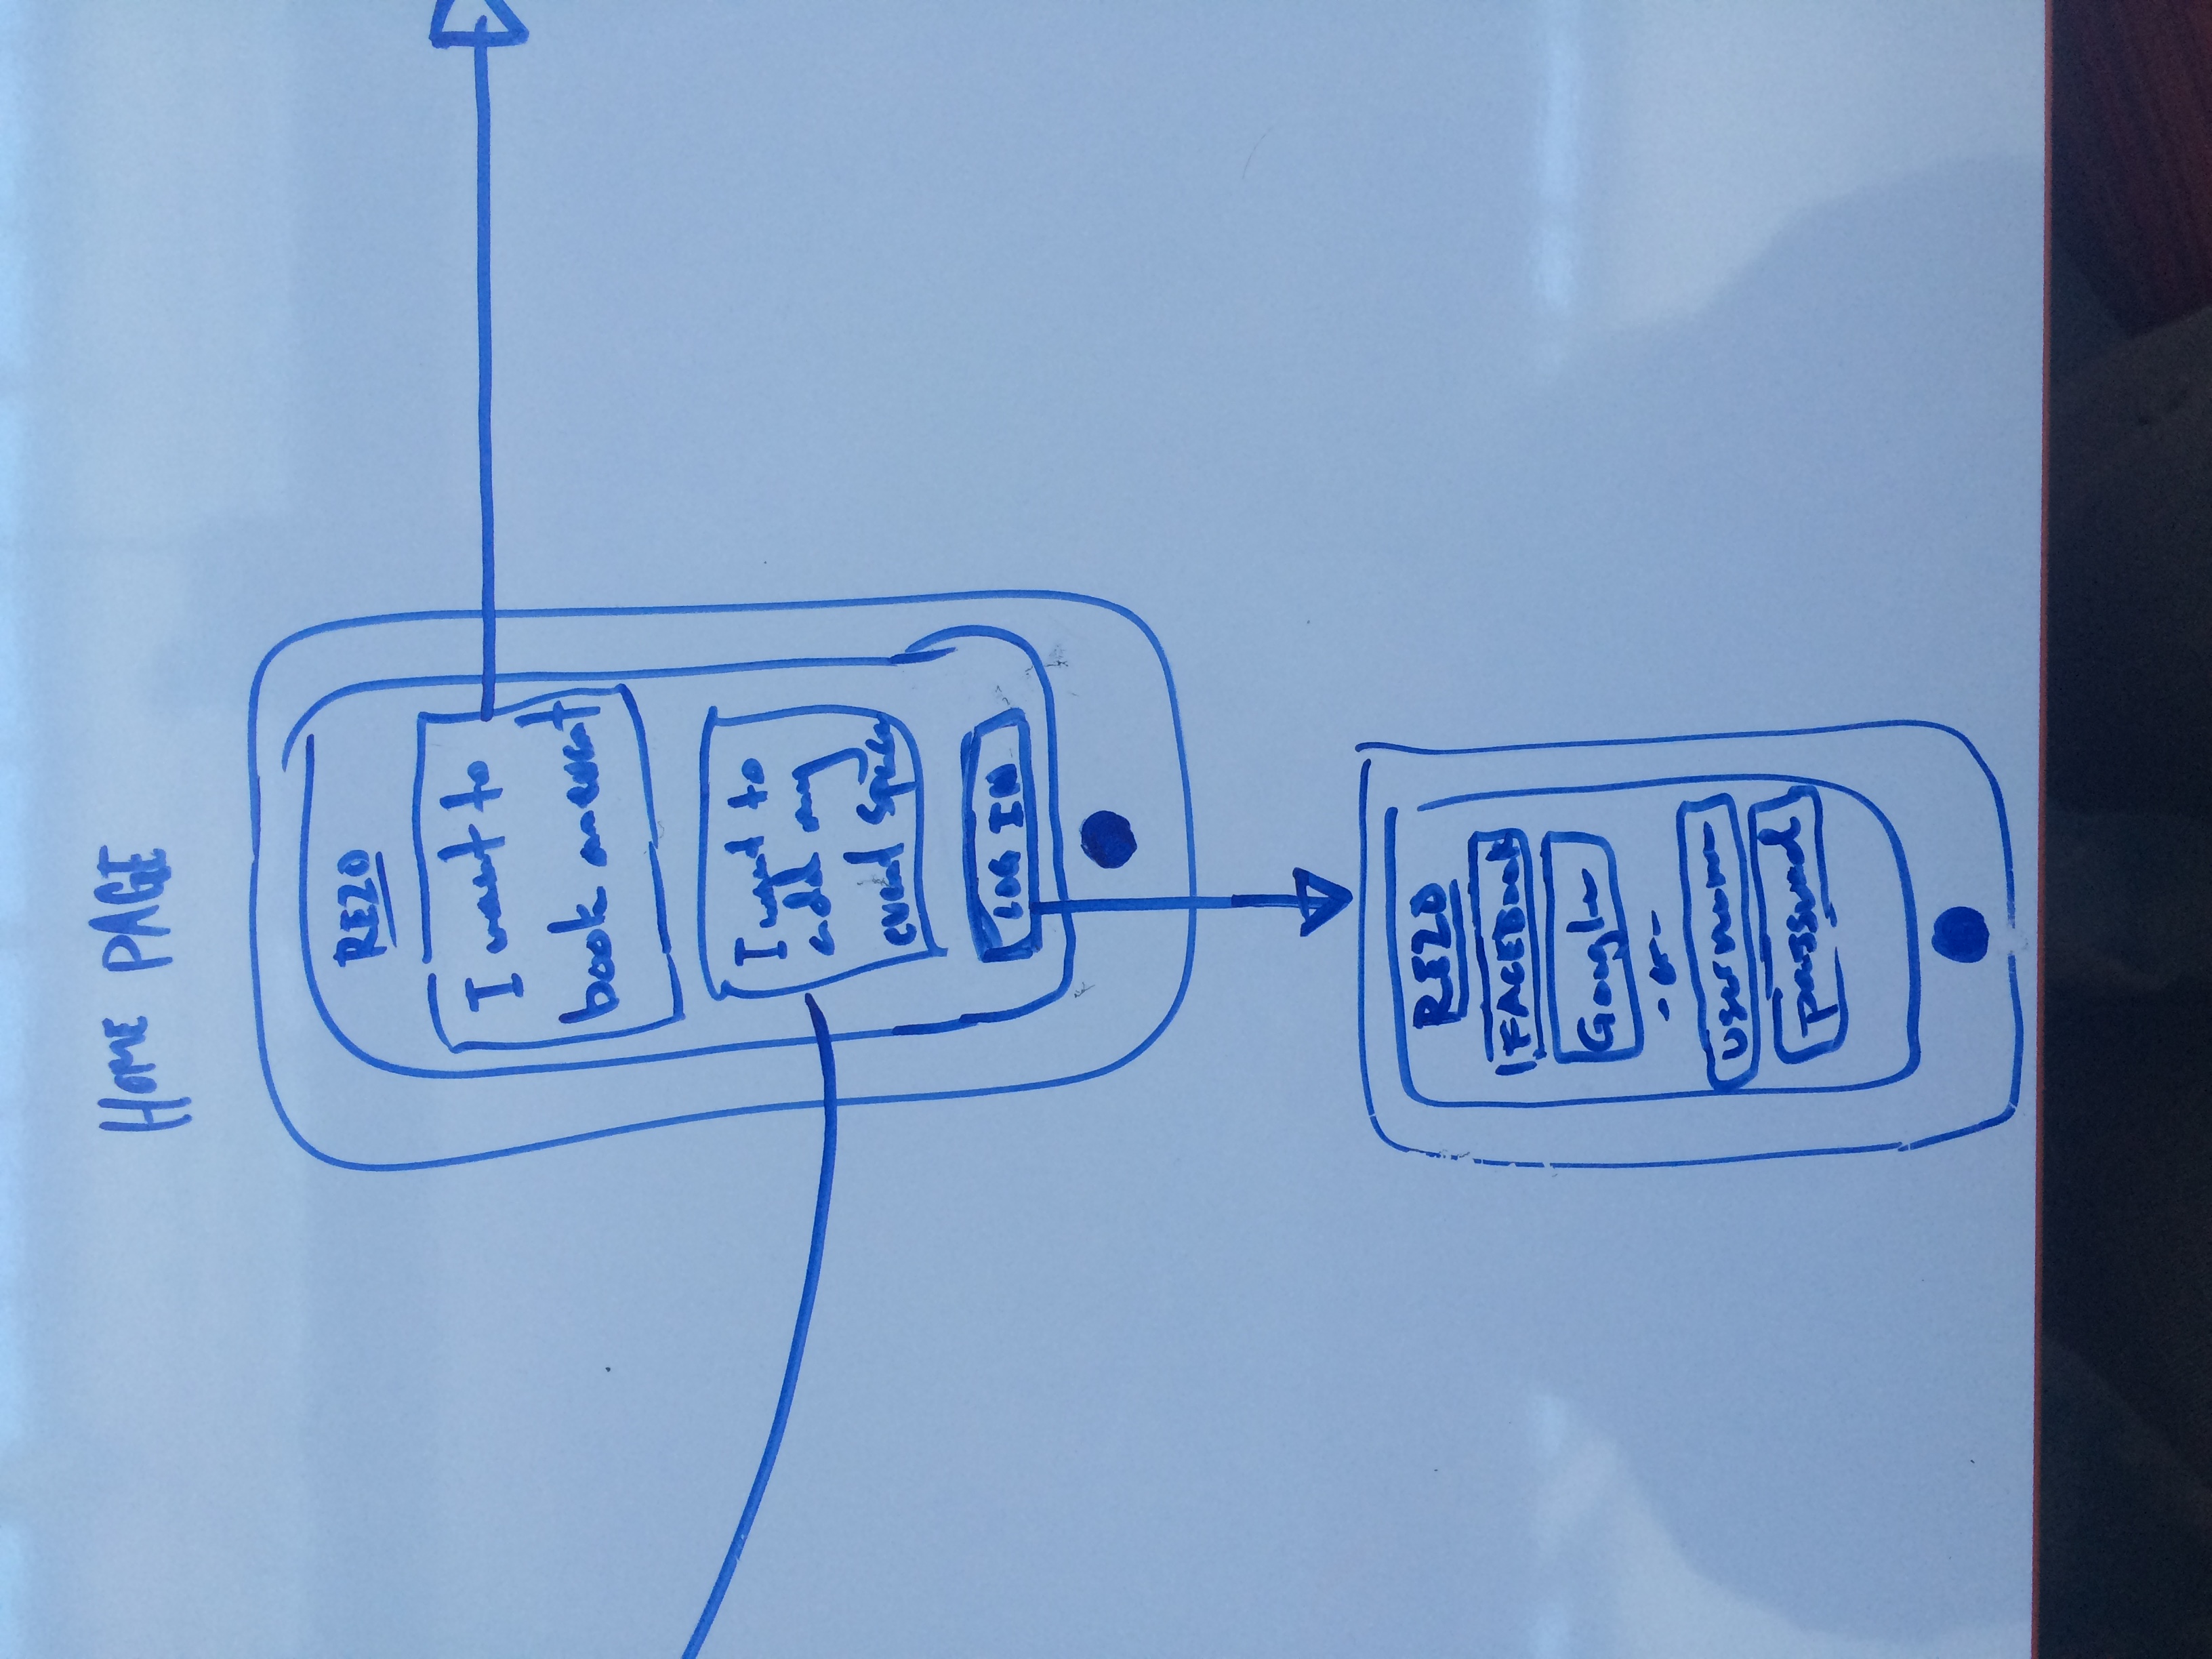 HOME PAGE
REZO
I want to
book an event
I want to
add my
event space
LOG IN
REZO
FACEBOOK
Google
- or -
username
password